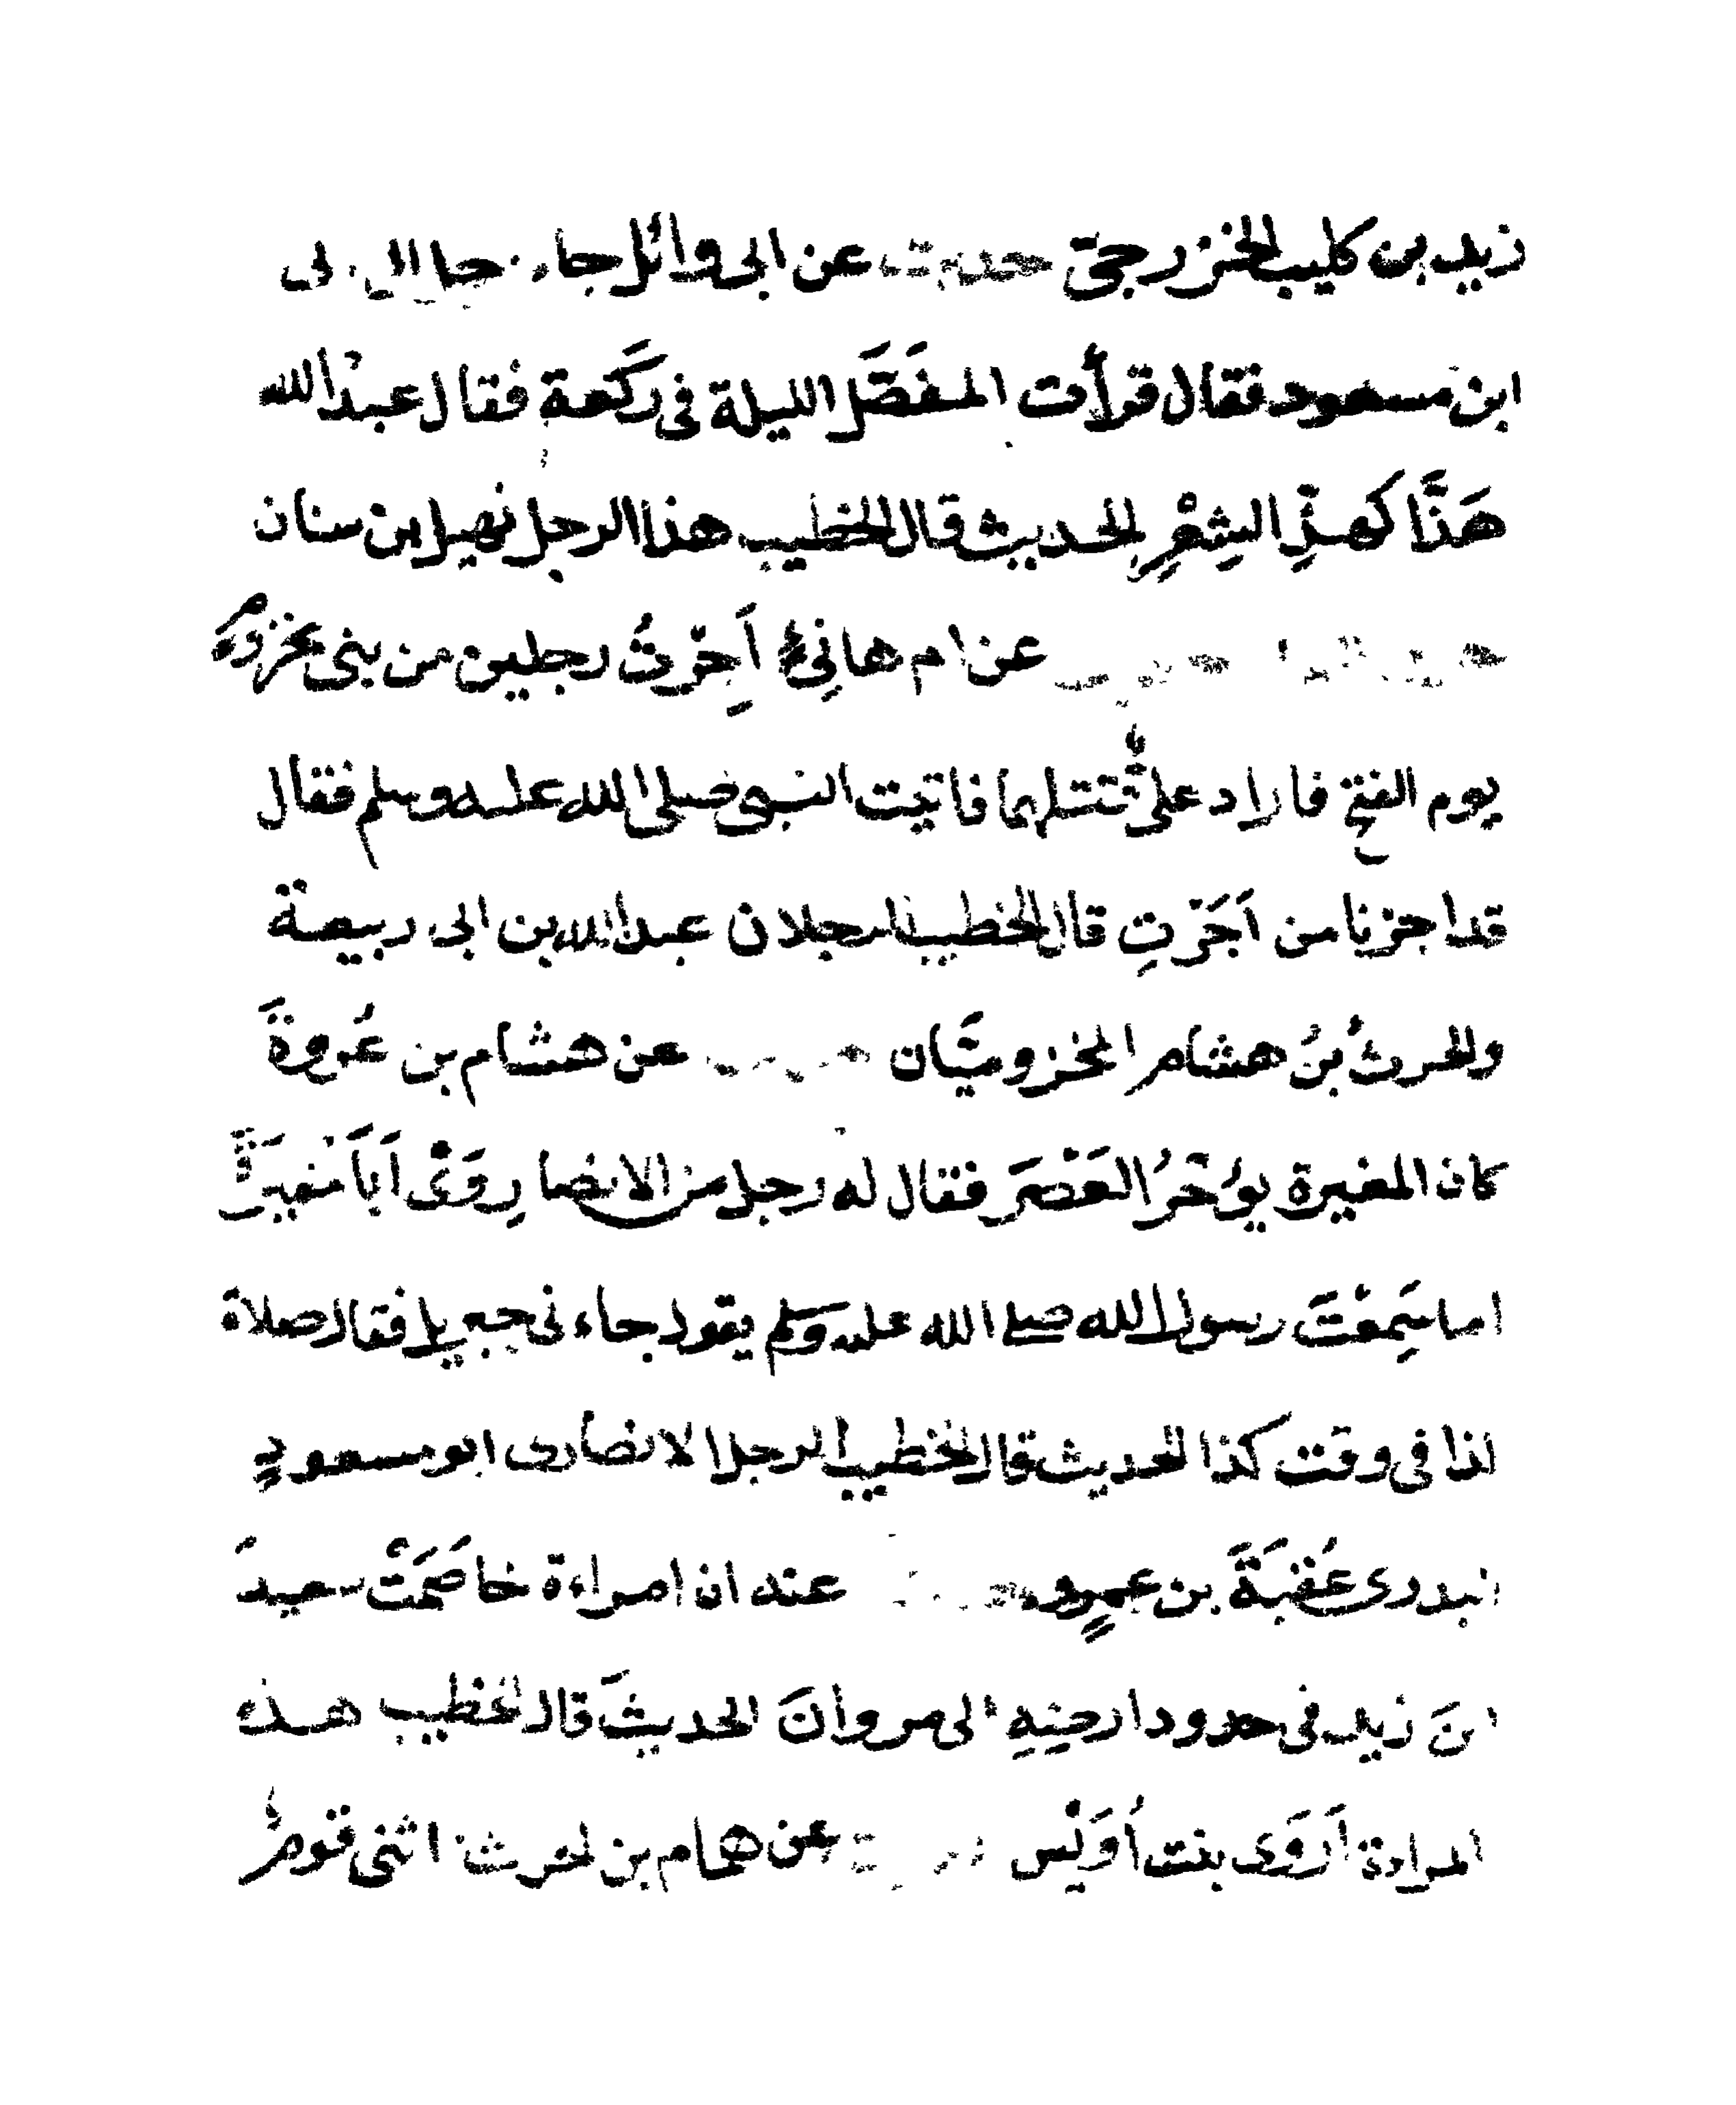 زيد بن كليب الخزرجي حديث عن ابى وائل جاء رجل الى
ابن مسعود فقال قرأت المفصَّل الليلة فى ركعة فقال عبد الله
هَذًّا كهذِّ الشِعْرِ الحديث قال الخطيب هذا الرجل نهيل بن سنان
عن ام هانِئ اَجَرْتُ رجلين من بنى مخزومٍ
يوم الفتح فاراد علىٌّ قتلهما فاتيت النبى صلى الله عليه وسلم فقال
قد اجرنا من اَجَرْتِ قال الخطيب الرجلان عبد الله بن ابى ربيعة
والحرثُ بنُ هشام المخزوميَّان عن هشام بن عُروةَ
كان المغيرة يؤخّرُ العَصْرَ فقال له رجل من الانصار رِوَىْ اَبَا مُغيرَةَ
اما سَمِعْتَ رسول الله صلى الله عليه وسلم يقول جاءنى جبريل فقال صلاة
كذا فى وقت كذا الحديث قال الخطيب الرجل الانصارى ابو مسعودٍ
البدرى عُقبَةَ بن عمرٍو عنه ان امراءة خاصَمَتْ سعيدَ
ابنَ زيد فى حدود ارضِهِ الى مروانَ الحديثَ قال الخطيب هذه
المراءة اَرْوَى بنت اُوَيْس عن همام بن الحرث اثنى قوم